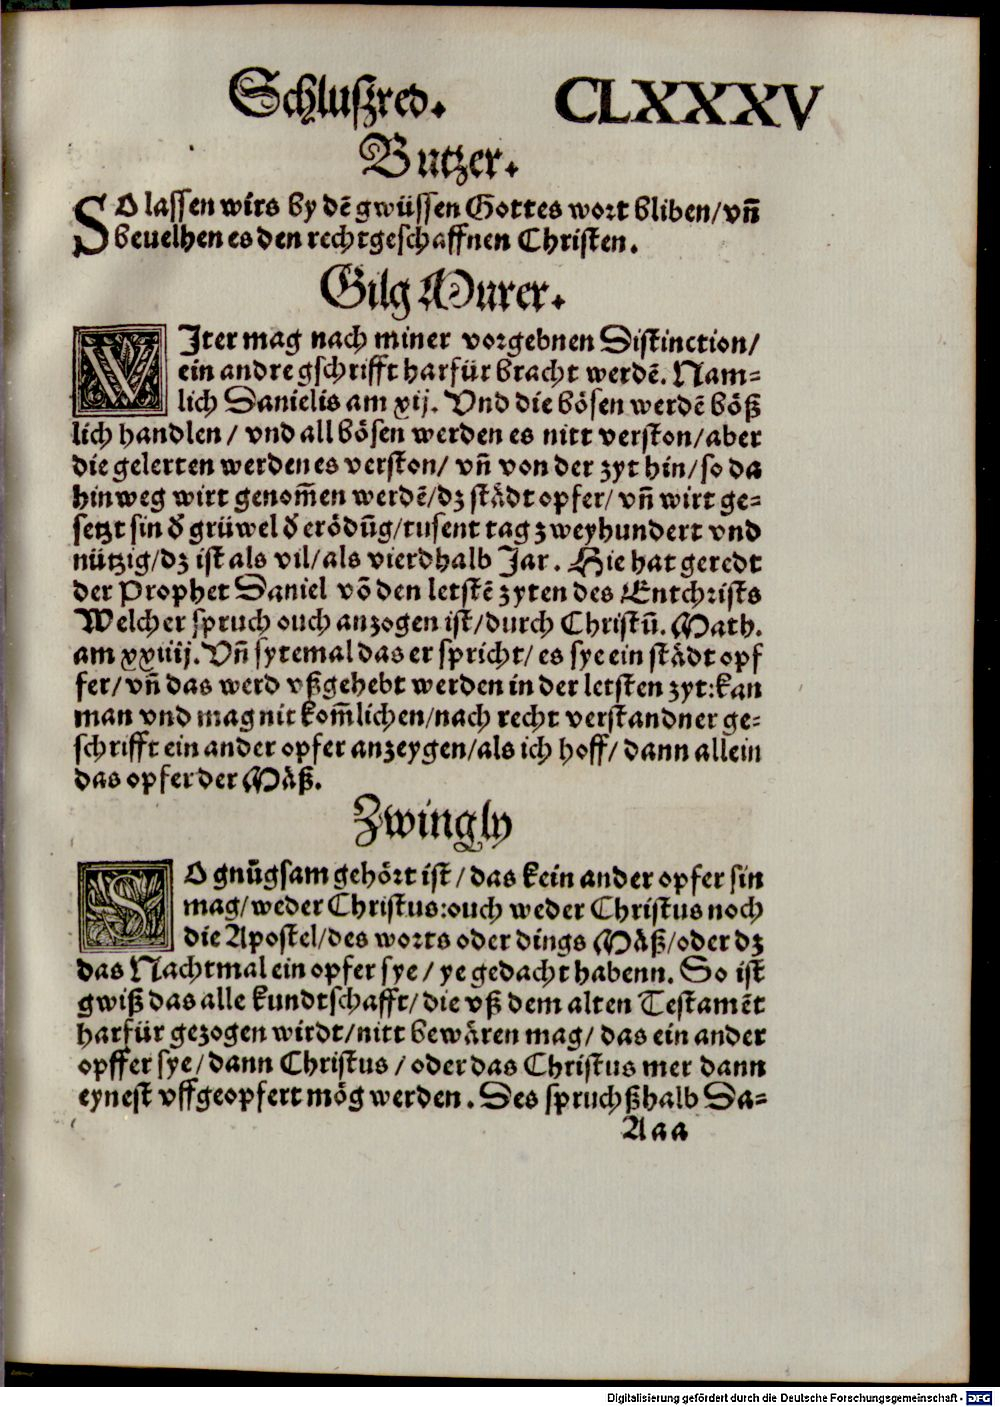 Schlußred. CLXXXV
Butzer.
SO lassen wirs by dē gwüssen Gottes wort bliben/vn̄
beuelhen es den rechtgeschaffnen Christen.
Gilg Murer.
WIter mag nach miner vorgebnen Distinction/
ein andre gschrifft harfür bracht werdē. Nam⸗
lich Danielis am xij. Vnd die bösen werdē böß
lich handlen/ vnd all bösen werden es nitt verston/aber
die gelerten werden es verston/ vn̄ von der zyt hin/so da
hinweg wirt genom̄en werdē/dz städt opfer/ vn̄ wirt ge⸗
setzt sin d̓ grüwel d̓ erödūg/tusent tag zweyhundert vnd
nützig/dz ist als vil/als vierdhalb Jar. Hie hat geredt
der Prophet Daniel vō den letstē zyten des Entchrists
Welcher spruch ouch anzogen ist/durch Christū. Math.
am xxiiij. Vn̄ sytemal das er spricht/ es sye ein städt opf
fer/ vn̄ das werd vßgehebt werden in der letsten zyt:kan
man vnd mag nit kom̄lichen/nach recht verstandner ge⸗
schrifft ein ander opfer anzeygen/als ich hoff/ dann allein
das opfer der Mäß.
Zwingly
SO gnūgsam gehört ist/das kein ander opfer sin
mag/weder Christus:ouch weder Christus noch
die Apostel/des worts oder dings Mäß/oder dz
das Nachtmal ein opfer sye/ ye gedacht habenn. So ist
gwiß das alle kundtschafft/die vß dem alten Testamēt
harfür gezogen wirdt/nitt bewären mag/ das ein ander
opffer sye/dann Christus/oder das Christus mer dann
eynest vffgeopfert mög werden. Des spruchßhalb Da⸗
Aaa
Digitalisierung gefördert durch die Deutsche Forschungsgemeinschaft - DFG